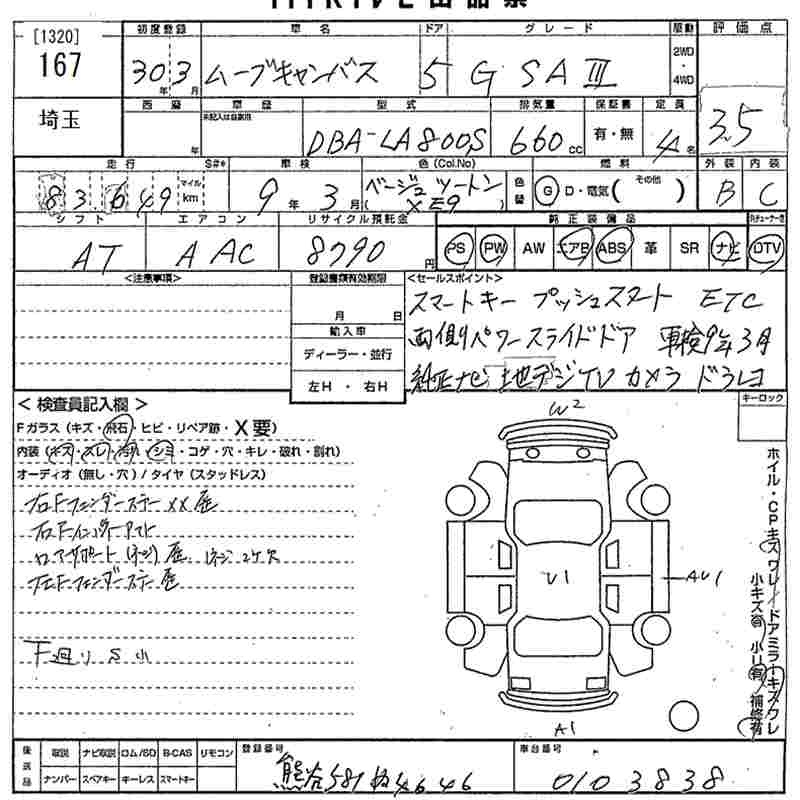 [1320]
167
埼玉
初度登録 車名 ドア グレード 駆動 評価点
30年3月 ムーブキャンバス 5 G SAⅢ 2WD・4WD 3.5
西暦 車歴 型式 排気量 保証書 定員
年 未記入は自家用 DBA-LA800S 660cc 有・無 4名
走行 S#* 車検 色(Col.No) 燃料 外装 内装
83,649 マイル km 9年3月 ベージュツートン (XE9) 色替 G D・電気 (その他) B C
シフト エアコン リサイクル預託金 純正装備品
AT AAC 8790円 PS PW AW エアB ABS 革 SR ナビ DTV
<注意事項> 登録書類有効期限 <セールスポイント>
月 日
輸入車
ディーラー・並行
左H ・ 右H
スマートキー プッシュスタート ETC
両側パワースライドドア 車検9年3月
純正ナビ 地デジTV カメラ ドラレコ
< 検査員記入欄 >
Fガラス (キズ・飛石・ヒビ・リペア跡・X要)
内装 (キズ・スレ・汚れ・シミ・コゲ・穴・キレ・破れ・割れ)
オーディオ (無し・穴) / タイヤ (スタッドレス)
右Fフェンダーステー XX 歴
ロアサポート (ネジ) 歴
右Fフェンダーステー 歴
下廻り S 小
キーロック
W2
U1
AU1
A1
ホイル・CPキズ ワレ / ドアミラーキズ ワレ
小キズ有 小U有 補修有
後送品 取説 ナビ取説 ロム/SD B-CAS リモコン
ナンバー スペアキー キーレス スマートキー
登録番号 熊谷581 4646
車台番号 0103838